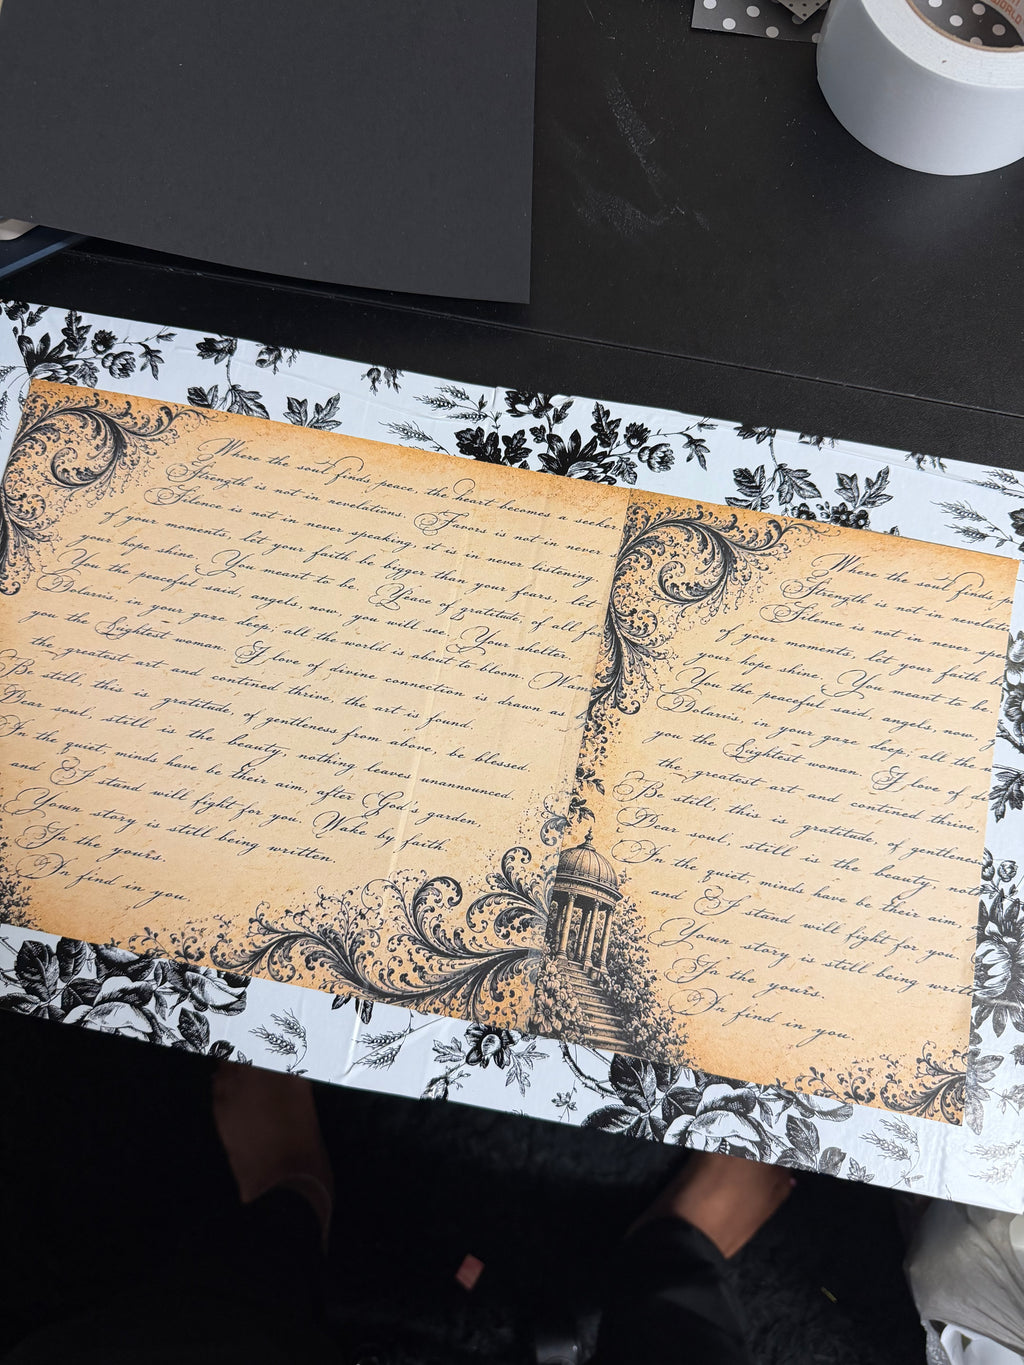 WORLD
Where the soul finds peace, the heart becomes a seeker
Strength is not in revelations. Favors is not in never
Silence is not in never speaking, it is in never listening.
of your moments, let your faith be bigger than your fears, let
your hope shine. You meant to be. Peace of gratitude, of all
You the peaceful said, angels, now, you will see. Your shelter.
Dolaris, in your gaze deep, all the world is about to bloom.
you the Lightest woman. I love of divine connection is drawn as
the greatest art and contined thrive, the art is found.
Be still, this is gratitude, of gentleness from above, be blessed.
Dear soul, still is the beauty, nothing leaves unannounced.
In the quiet, minds have be their aim, after God's garden.
and I stand will fight for you. Wake by faith.
Yown story is still being written.
In the yours.
In find in you.
Where the soul finds
Strength is not in
Silence is not in never
of your moments, let your faith
your hope shine. You meant to be.
You the peaceful said, angels, now,
Dolaris, in your gaze deep, all the
you the Lightest woman. I love of
the greatest art and contined thrive,
Be still, this is gratitude, of
Dear soul, still is the beauty,
In the quiet, minds have be their aim,
and I stand will fight for you.
Yown story is still being
In the yours.
In find in you.